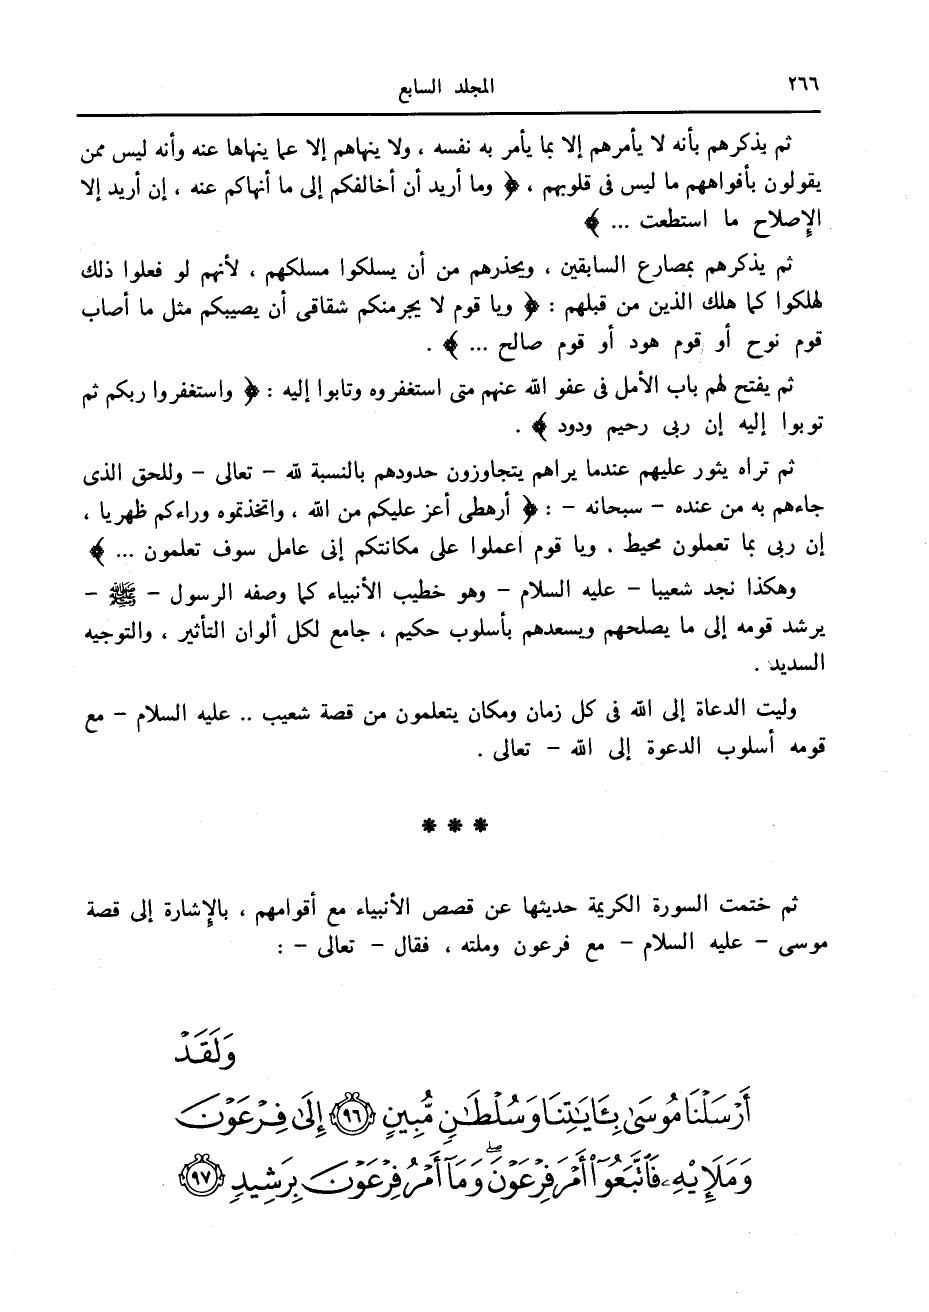 ٢٦٦ المجلد السابع
ثم يذكرهم بأنه لا يأمرهم إلا بما يأمر به نفسه ، ولا ينهاهم إلا عما ينهاها عنه وأنه ليس ممن
يقولون بأفواههم ما ليس فى قلوبهم ، ﴿ وما أريد أن أخالفكم إلى ما أنهاكم عنه ، إن أريد إلا
الإصلاح ما استطعت ... ﴾
ثم يذكرهم بمصارع السابقين ، ويحذرهم من أن يسلكوا مسلكهم ، لأنهم لو فعلوا ذلك
لهلكوا كما هلك الذين من قبلهم : ﴿ ويا قوم لا يجرمنكم شقاقى أن يصيبكم مثل ما أصاب
قوم نوح أو قوم هود أو قوم صالح ... ﴾ .
ثم يفتح لهم باب الأمل فى عفو الله عنهم متى استغفروه وتابوا إليه : ﴿ واستغفروا ربكم ثم
توبوا إليه إن ربى رحيم ودود ﴾ .
ثم تراه يثور عليهم عندما يراهم يتجاوزون حدودهم بالنسبة لله – تعالى – وللحق الذى
جاءهم به من عنده – سبحانه – : ﴿ أرهطى أعز عليكم من الله ، واتخذتموه وراءكم ظهريا ،
إن ربى بما تعملون محيط . ويا قوم اعملوا على مكانتكم إنى عامل سوف تعلمون ... ﴾
وهكذا نجد شعيبا – عليه السلام – وهو خطيب الأنبياء كما وصفه الرسول – ﷺ –
يرشد قومه إلى ما يصلحهم ويسعدهم بأسلوب حكيم ، جامع لكل ألوان التأثير ، والتوجيه
السديد .
وليت الدعاة إلى الله فى كل زمان ومكان يتعلمون من قصة شعيب .. عليه السلام – مع
قومه أسلوب الدعوة إلى الله – تعالى .
* * *
ثم ختمت السورة الكريمة حديثها عن قصص الأنبياء مع أقوامهم ، بالإشارة إلى قصة
موسى – عليه السلام – مع فرعون وملئه ، فقال – تعالى – :
وَلَقَدْ
أَرْسَلْنَا مُوسَىٰ بِـَٔايَـٰتِنَا وَسُلْطَـٰنٍ مُّبِينٍ ﴿٩٦﴾ إِلَىٰ فِرْعَوْنَ
وَمَلَإِي۟هِۦ فَٱتَّبَعُوٓا۟ أَمْرَ فِرْعَوْنَ ۖ وَمَآ أَمْرُ فِرْعَوْنَ بِرَشِيدٍ ﴿٩٧﴾